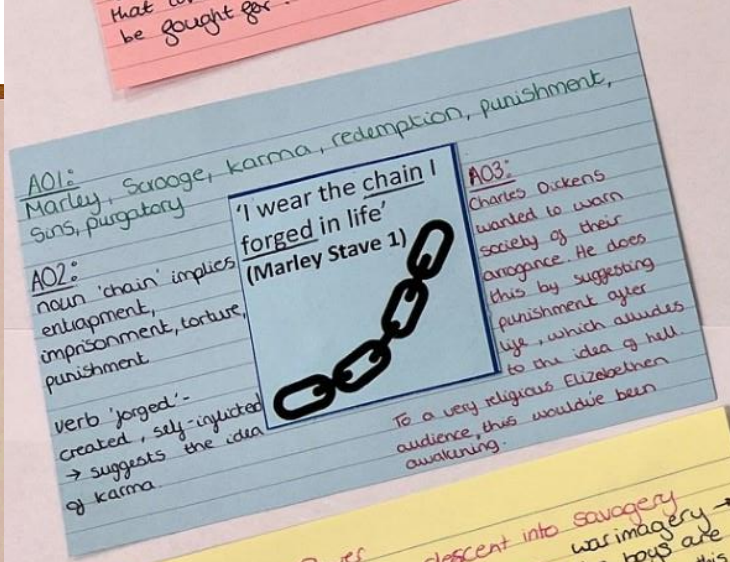 that
be fought for.
AO1:
Marley, Scrooge, karma, redemption, punishment,
Sins, purgatory
AO2:
noun 'chain' implies
entrapment,
imprisonment, torture,
punishment
verb 'forged' -
created, self-inflicted
→ suggests the idea
of karma.
'I wear the chain I
forged in life'
(Marley Stave 1)
AO3:
Charles Dickens
wanted to warn
society of their
arrogance. He does
this by suggesting
punishment after
life, which alludes
to the idea of hell
To a very religious Elizabethen
audience, this would've been
awakening.
descent into savagery
war imagery →
boys are
this